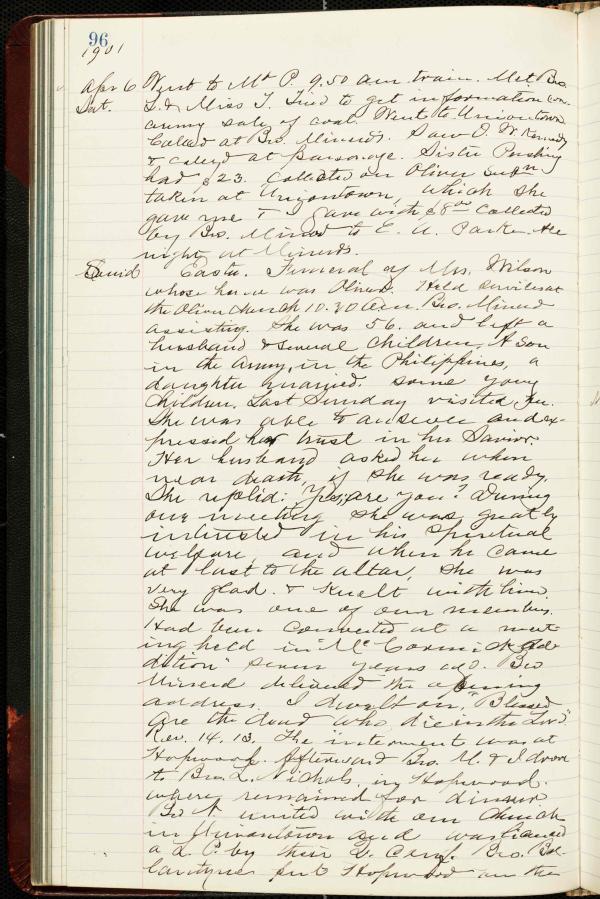 96
1901
Apr 6 Went to Mt P. 9.50 am. train. Met Bro.
Sat. L. & Miss T. Tried to get information on
army sale of coal. Went to Uniontown
Called at Bro. Minerds. Saw O. W. Kennedy
& called at parsonage. Sister Pushing
had $23. collected on Oliver
taken at Uniontown, which she
gave me I gave with $8 00 collected
by Bro. Minerd to E. A. Parke.
night at Minerds.
Easter. Funeral of Mrs. Wilson
whose home was Oliver. Held services at
the Oliver church 10.30 a.m. Bro. Minerd
assisting. She was 56. and left a
husband & several children. A son
in the Army, in the Philippines, a
daughter married. some young
children. Last Sunday visited her.
She was able to answer and ex-
pressed her trust in her Savior.
Her husband asked her when
near death, if she was ready.
She replied: Yes, are you? During
our meeting she was greatly
interested in his spiritual
welfare, and when he came
at last to the altar, she was
very glad. & knelt with him.
She was one of our members.
Had been converted at a meet-
ing held in "McCormick Ad-
dition" seven years ago. Bro
Minerd delivered the opening
address. I dwelt on, "Blessed
are the dead who die in the Lord"
Rev. 14. 13. The interment was at
Hopwood. Afterward Bro. M. & I drove
to Bro. L. Nichols, in Hopwood.
where remained for dinner
Bro N. united with our church
in Uniontown and was licensed
a L. P. by their Q. Conf. Bro. Bal-
lantyne put Hopwood on the